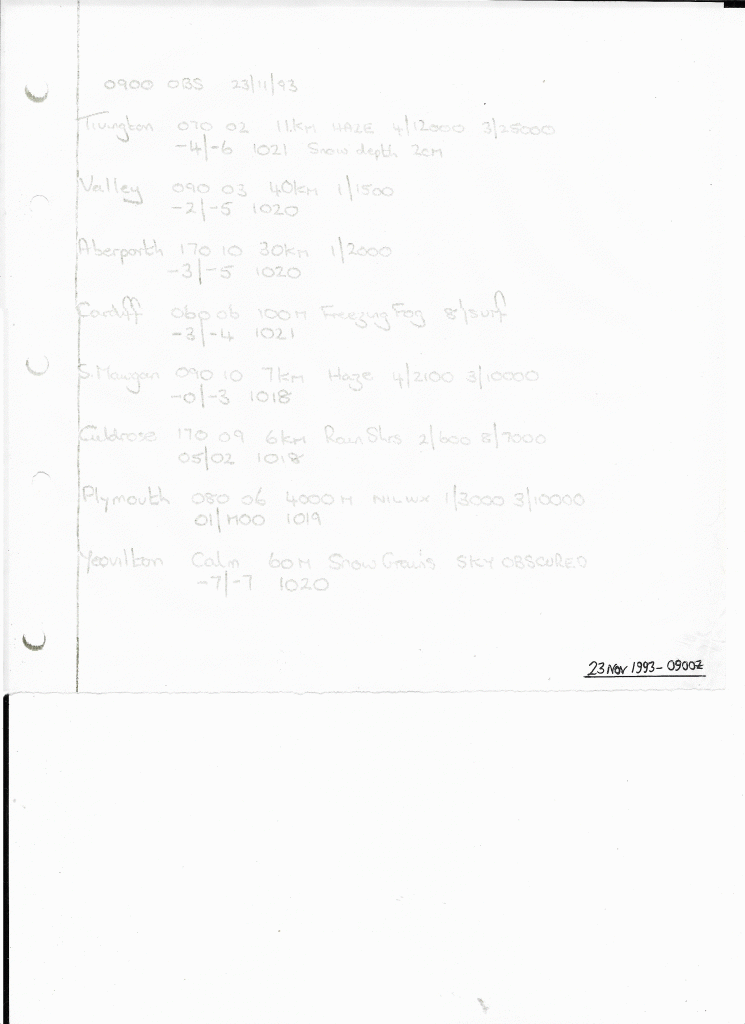 0900 OBS 23/11/93
Tivington 070 02 11km HAZE 4/12000 3/25000
-4/-6 1021 Snow depth 2cm
Valley 090 03 40km 1/1500
-2/-5 1020
Aberporth 170 10 30km 1/2000
-3/-5 1020
Cardiff 060 06 100M Freezing Fog 8/surf
-3/-4 1021
S.Mawgan 090 10 7km Haze 4/2100 3/10000
-0/-3 1018
Culdrose 170 09 6km Rain Shrs 2/600 8/7000
05/02 1018
Plymouth 080 06 4000M NIL WX 1/3000 3/10000
01/M00 1019
Yeovilton Calm 60M Snow Grains SKY OBSCURED
-7/-7 1020
23 Nov 1993 - 0900Z